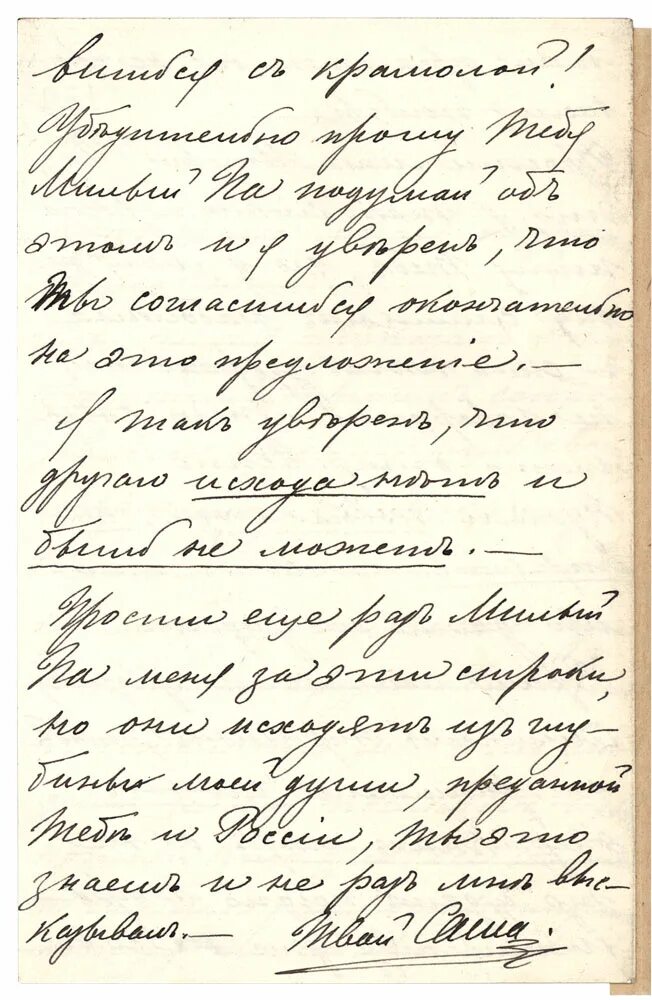 вишься съ крамолой!
Убѣдительно прошу Тебя
Милый Па подумай объ
этомъ и я увѣренъ, что
Ты согласишься окончательно
на это предложеніе. —
Я такъ увѣренъ, что
другаго исхода нѣтъ и
быть не можетъ. —
Прости еще разъ Милый
Па меня за эти строки,
но они исходятъ изъ глу–
бины моей души, преданной
Тебѣ и Россіи, ты это
знаешь и не разъ мнѣ выс–
казывалъ. — Твой Саша.